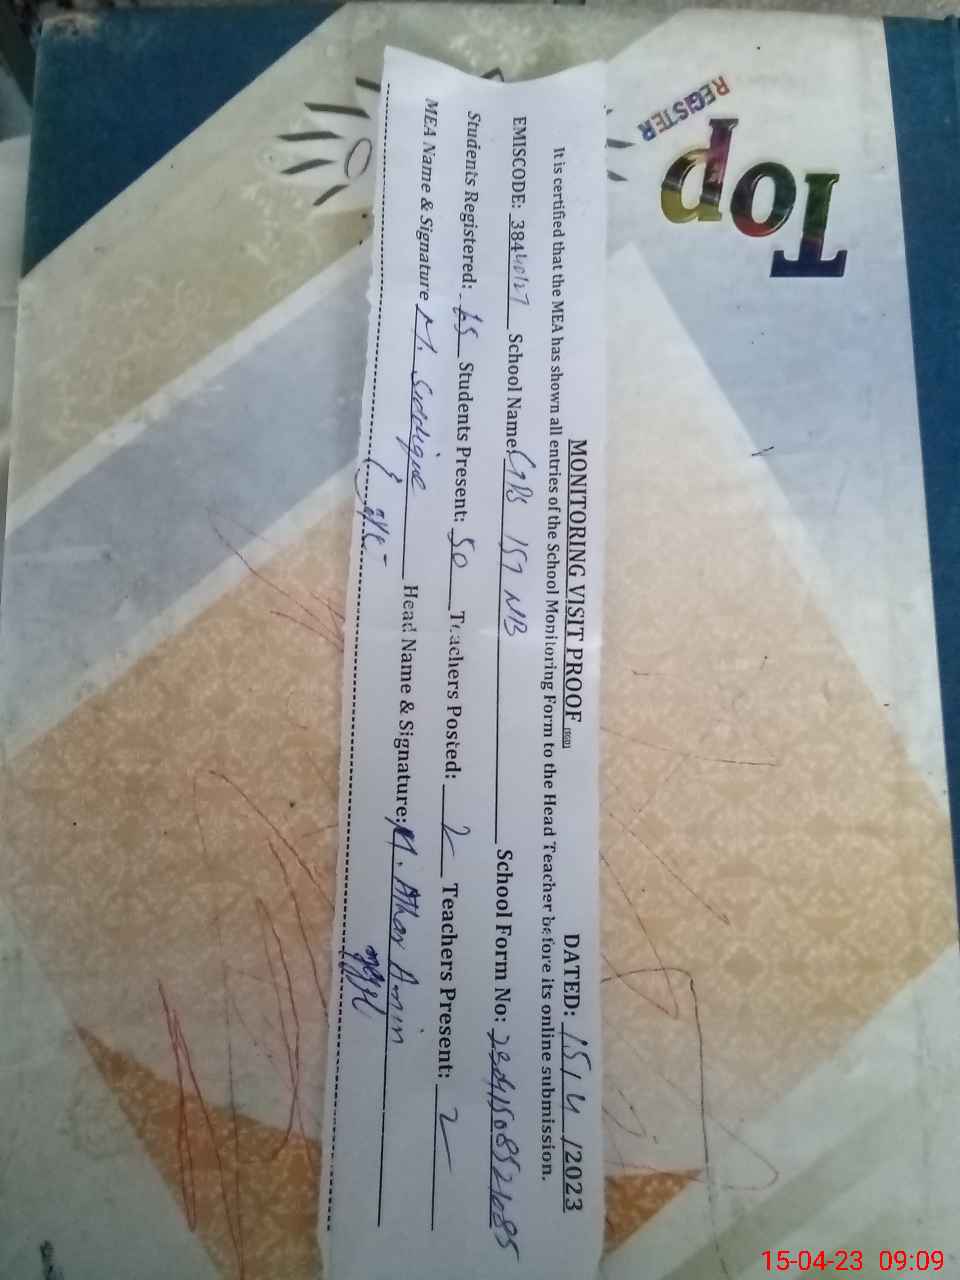 Top
REGISTER
MONITORING VISIT PROOF DATED: 15/4/2023
It is certified that the MEA has shown all entries of the School Monitoring Form to the Head Teacher before its online submission.
EMISCODE: 38440127 School Name: GPS 157 NB School Form No:
Students Registered: 65 Students Present: 50 Teachers Posted: 2 Teachers Present: 2
MEA Name & Signature M. Siddique Head Name & Signature: M. Athar Amin
15-04-23 09:09